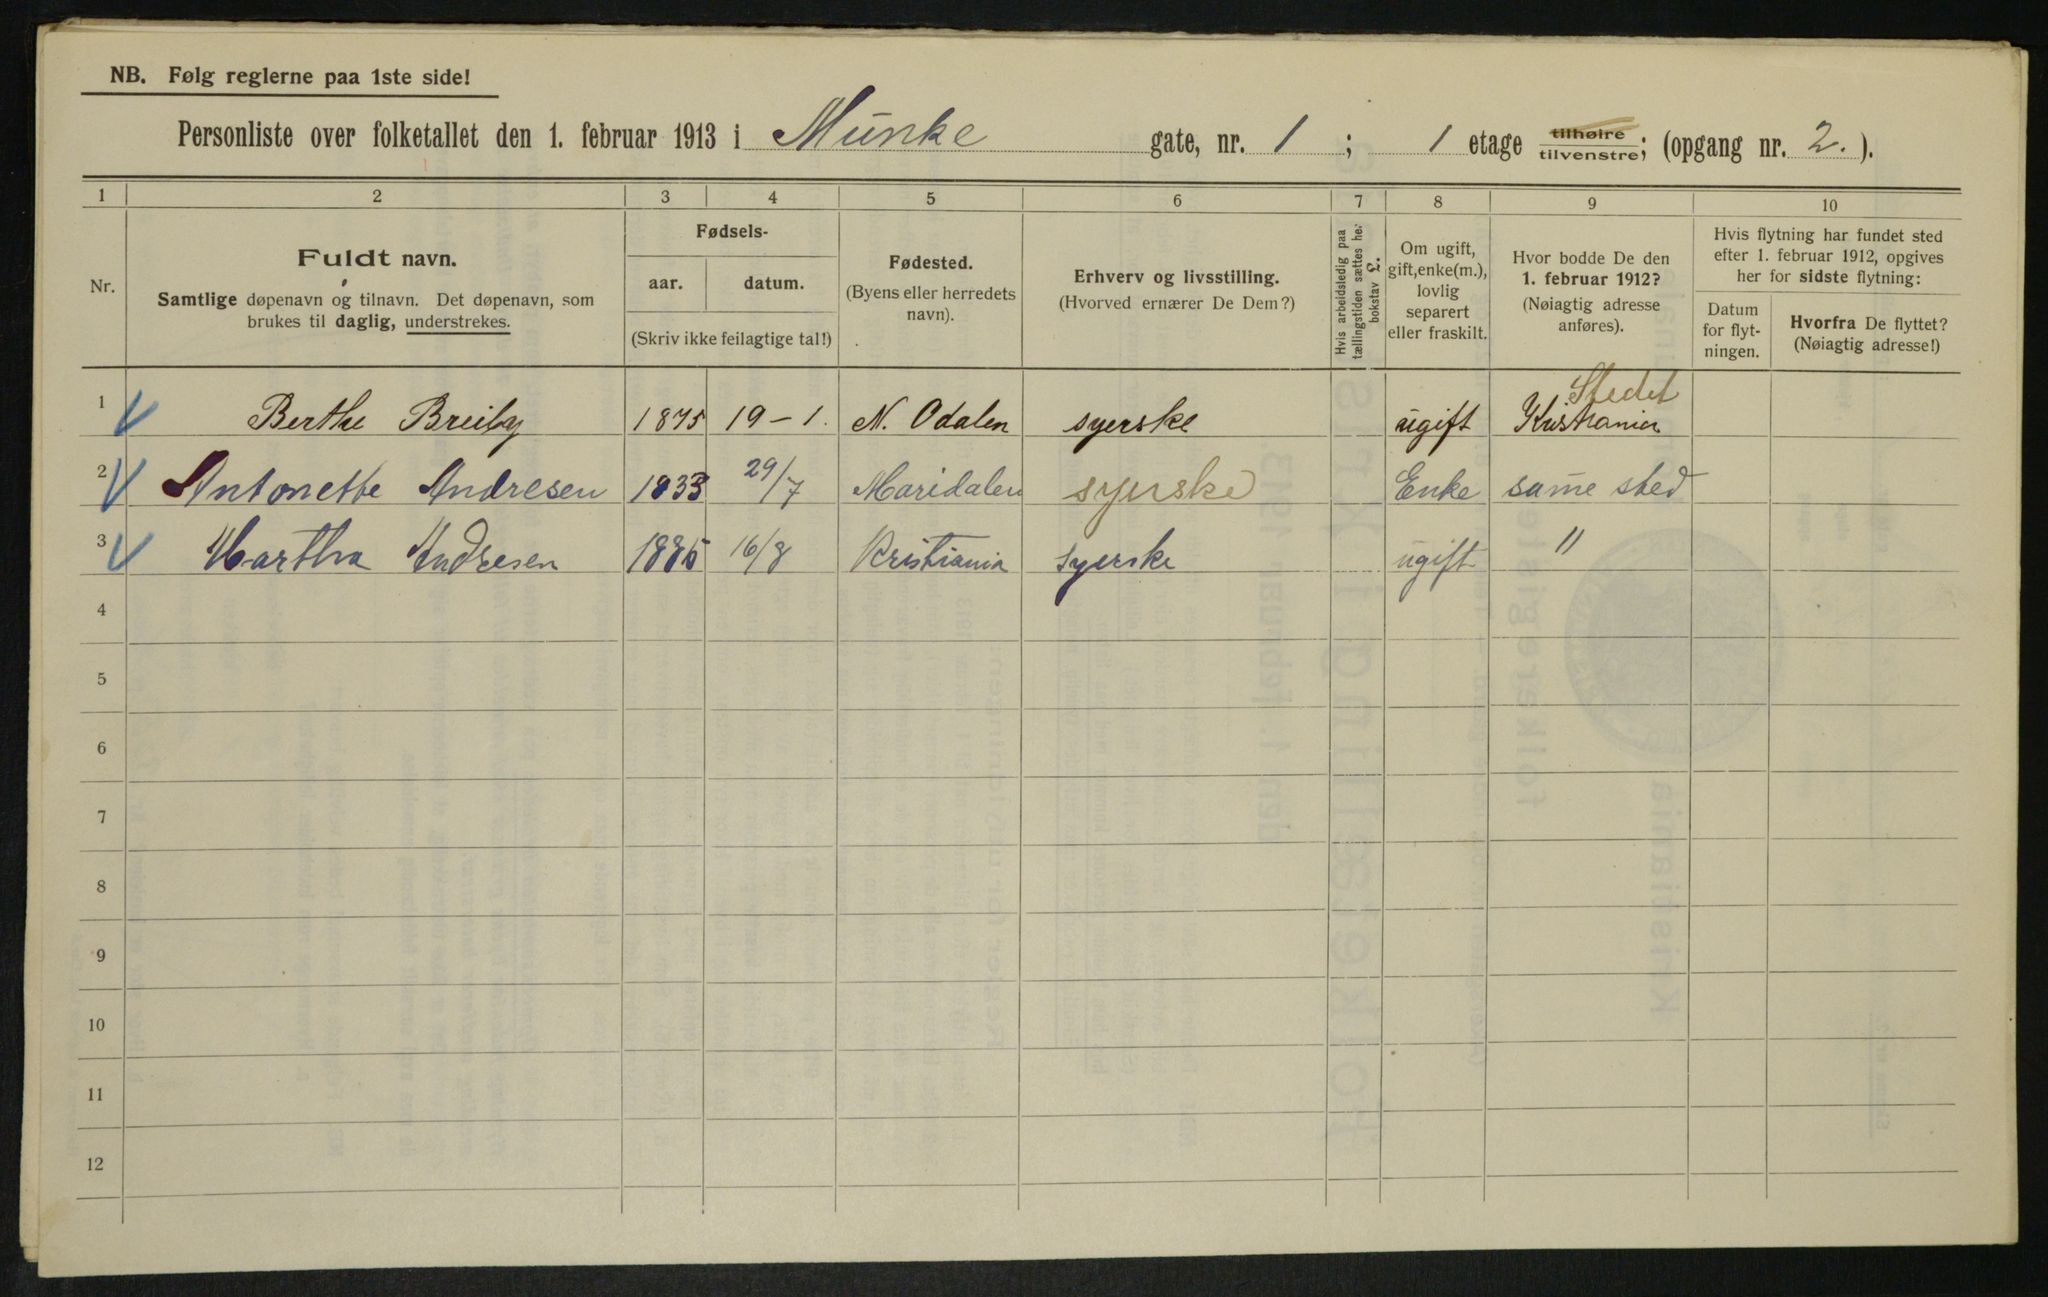 NB. Følg reglerne paa 1ste side!
Personliste over folketallet den 1. februar 1913 i Munke gate, nr. 1 ; 1 etage tilhøire tilvenstre; (opgang nr. 2. ).
1 2 3 4 5 6 7 8 9 10
Nr.
Fuldt navn.
Samtlige døpenavn og tilnavn. Det døpenavn, som
brukes til daglig, understrekes.
Fødsels-
aar. datum.
(Skriv ikke feilagtige tal!)
Fødested.
(Byens eller herredets
navn).
Erhverv og livsstilling.
(Hvorved ernærer De Dem?)
Hvis arbeidsledig paa
tællingstiden sættes he:
bokstav L.
Om ugift,
gift, enke(m.),
lovlig
separert
eller fraskilt.
Hvor bodde De den
1. februar 1912?
(Nøiagtig adresse
anføres).
Hvis flytning har fundet sted
efter 1. februar 1912, opgives
her for sidste flytning:
Datum
for flyt-
ningen.
Hvorfra De flyttet?
(Nøiagtig adresse!)
Stedet
1 Berthe Breiby 1875 19-1. N. Odalen syerske ugift Kristiania
2 Antonette Andresen 1833 29/7 Maridalen syerske Enke same sted
3 Martha Andresen 1885 16/8 Kristiania syerske ugift "
4
5
6
7
8
9
10
11
12